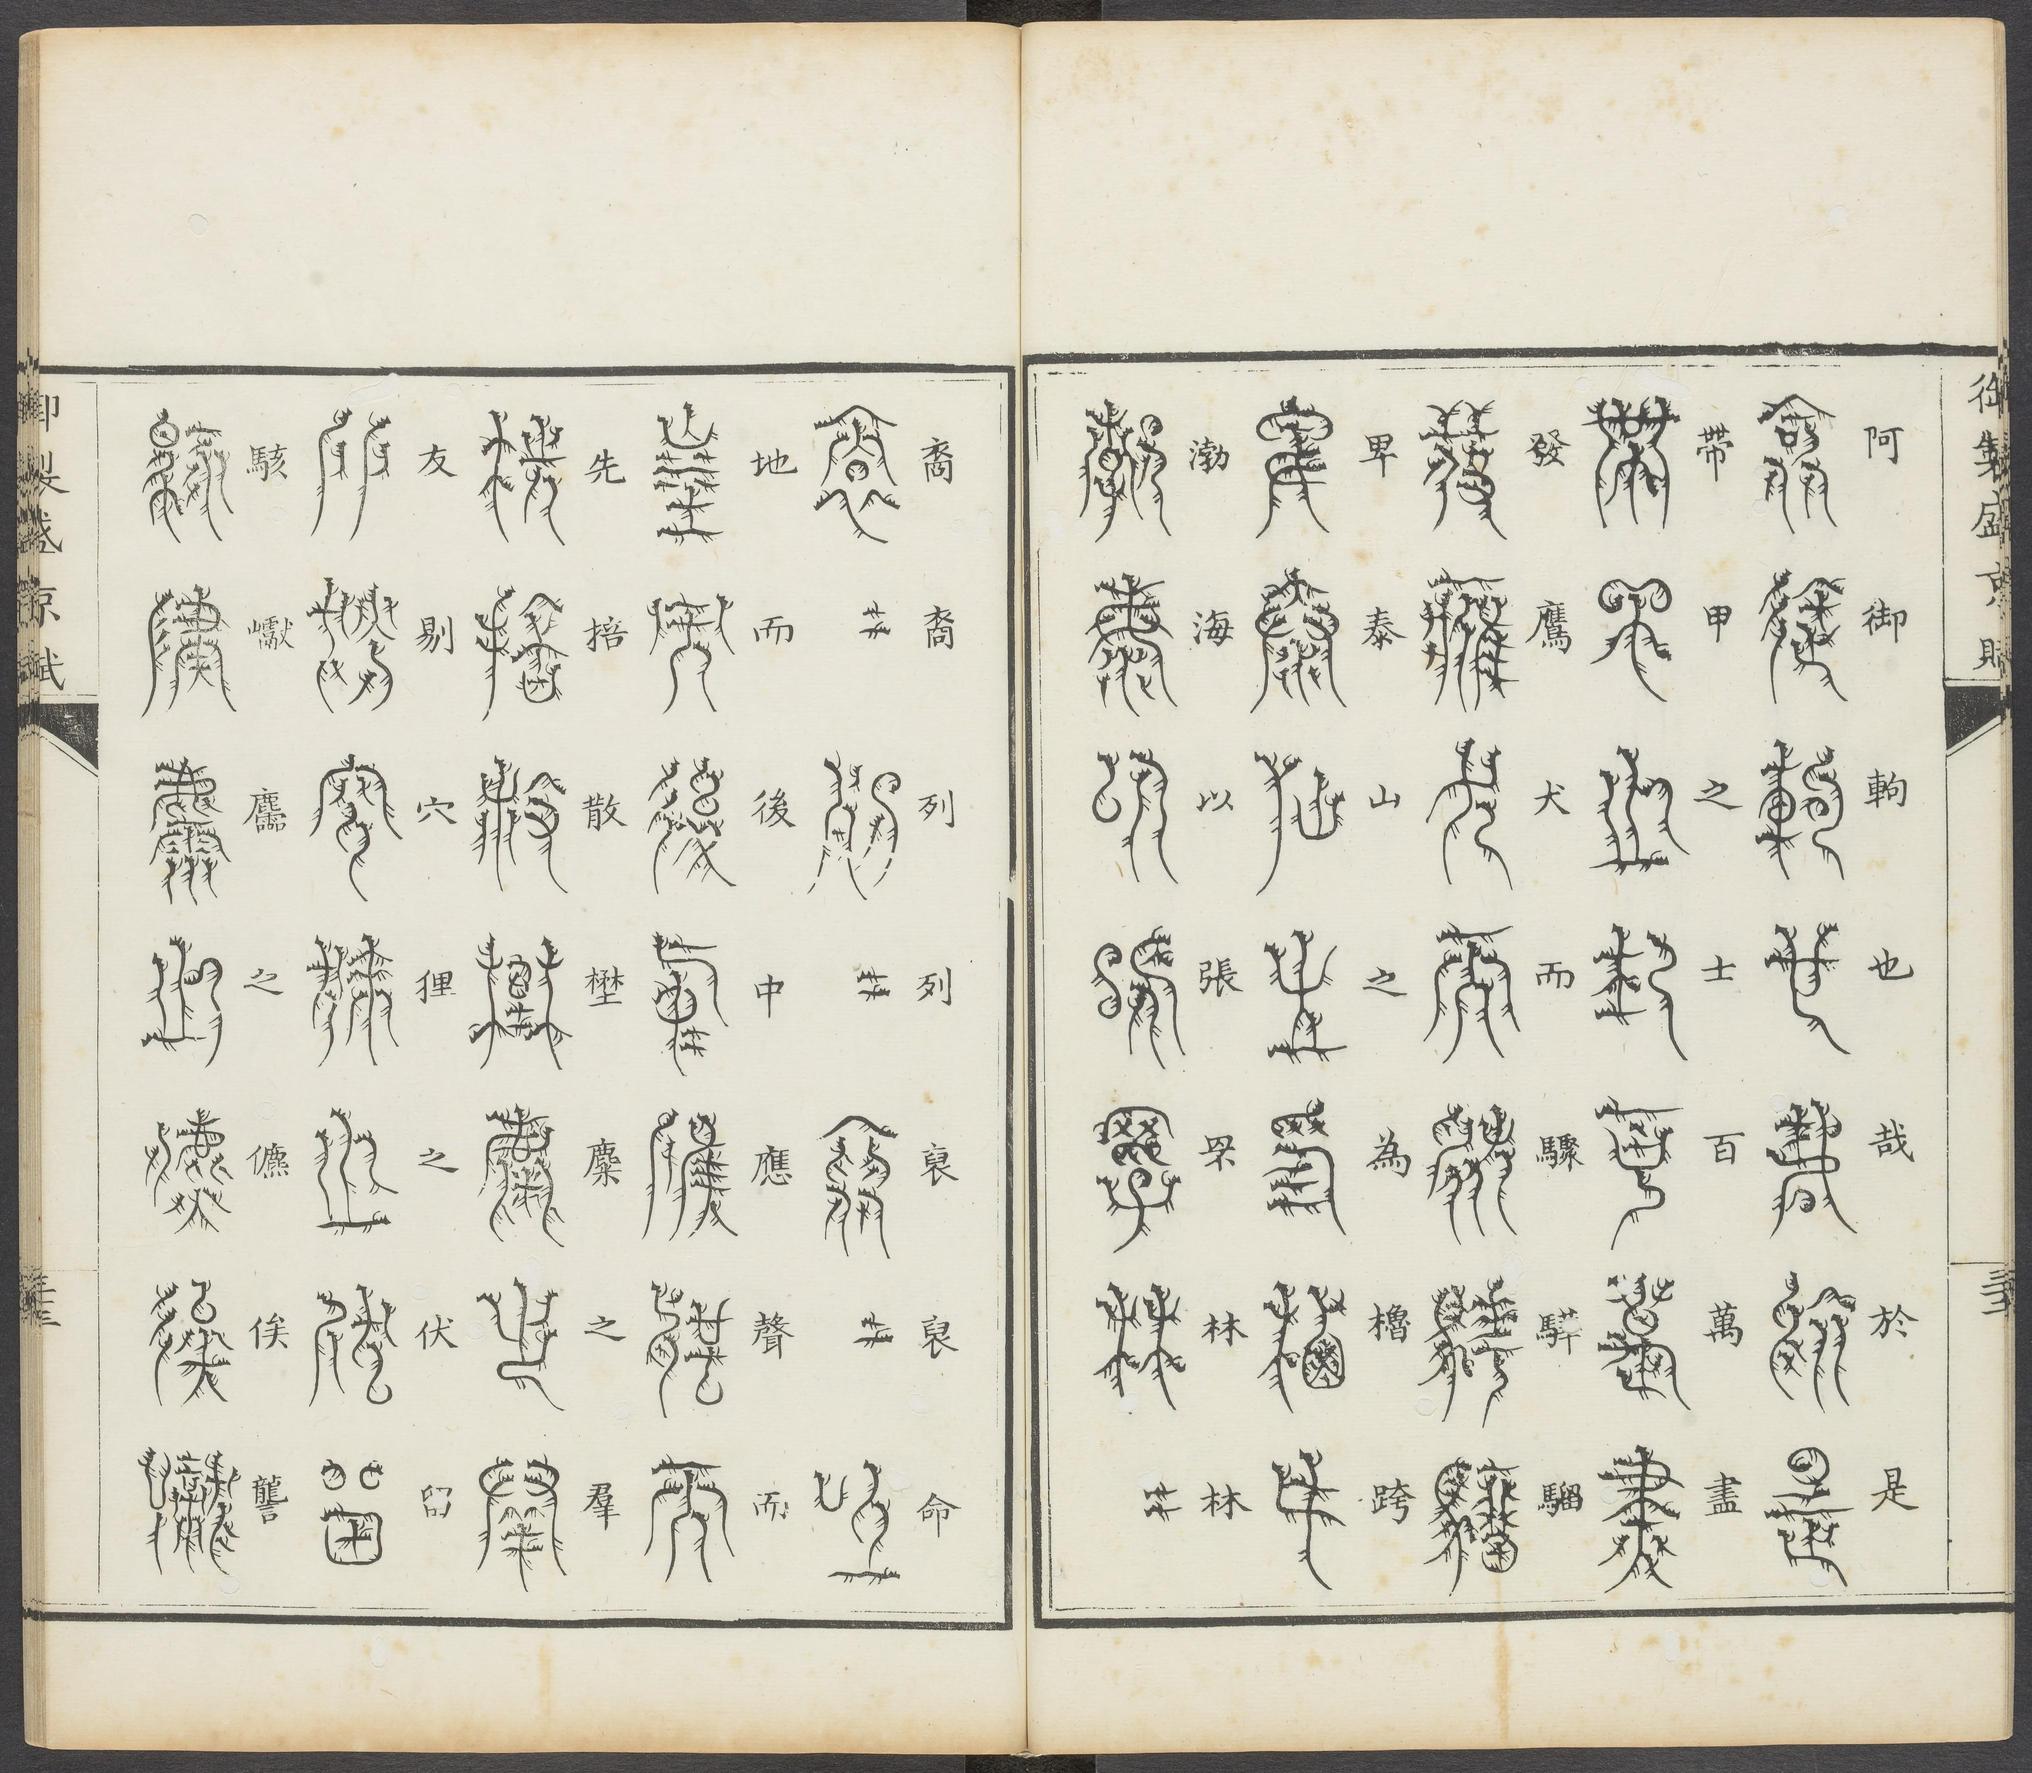 御製盛京賦
阿御軥也哉於是
帶甲之士百萬盡
發鷹犬而驟驊騮
卑泰山之為櫓跨
渤海以張罘林林
裔裔列列裒裒命
地而後中應聲而
先掊散壄麋之羣
友剔穴狸之伏
駭巘麢之儦俟讋
御製盛京賦